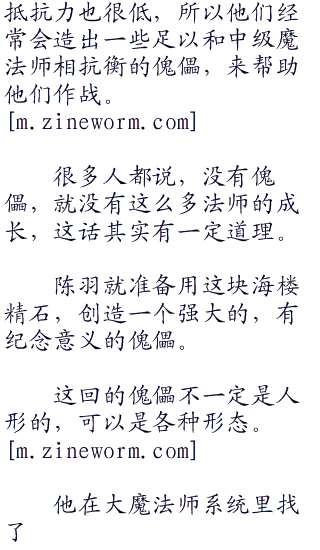 抵抗力也很低，所以他们经
常会造出一些足以和中级魔
法师相抗衡的傀儡，来帮助
他们作战。
[m.zineworm.com]
很多人都说，没有傀
儡，就没有这么多法师的成
长，这话其实有一定道理。
陈羽就准备用这块海楼
精石，创造一个强大的，有
纪念意义的傀儡。
这回的傀儡不一定是人
形的，可以是各种形态。
[m.zineworm.com]
他在大魔法师系统里找
了